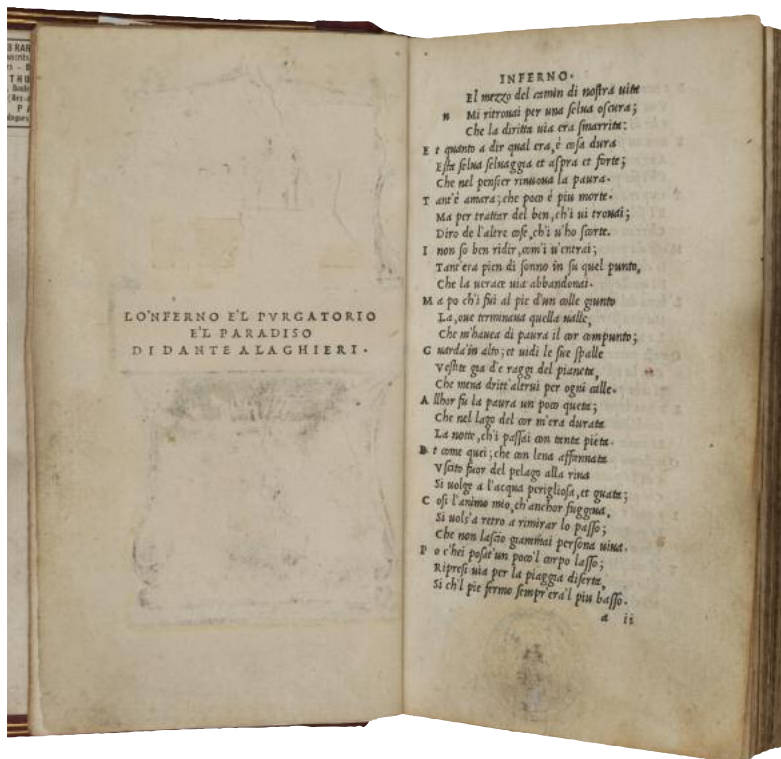 B RAR
THU
P A
LO'NFERNO E'L PVRGATORIO
E'L PARADISO
DI DANTE ALAGHIERI.
INFERNO.
El mezzo del camin di noſtra uita
N Mi ritrouai per una ſelua oſcura;
Che la diritta uia era ſmarrita:
E t quanto a dir qual era, è coſa dura
Eſta ſelua ſeluaggia et aſpra et forte;
Che nel penſier rinuoua la paura.
T ant'è amara; che poco è piu morte.
Ma per trattar del ben, ch'i ui trouai;
Diro de l'altre coſe, ch'i u'ho ſcorte.
I non ſo ben ridir, com'i u'entrai;
Tant'era pien di ſonno in ſu quel punto,
Che la uerace uia abbandonai.
M a po ch'i fui al pie d'un colle giunto
La, oue terminaua quella ualle,
Che m'hauea di paura il cor compunto;
G uarda'in alto; et uidi le ſue ſpalle
Veſtite gia d'e raggi del pianeta,
Che mena dritt'altrui per ogni calle.
A llhor fu la paura un poco queta;
Che nel lago del cor m'era durata
La notte, ch'i paſſai con tanta pieta.
E t come quei; che con lena affannata
Vſcito fuor del pelago alla riua
Si uolge a l'acqua periglioſa, et guata;
C oſi l'animo mio, ch'anchor fuggiua,
Si uolſ'a retro a rimirar lo paſſo;
Che non laſcio giammai perſona uiua.
P o c'hei poſat'un poco'l corpo laſſo;
Ripreſi uia per la piaggia diſerta,
Si ch'l pie fermo ſempr'era'l piu baſſo.
a ii